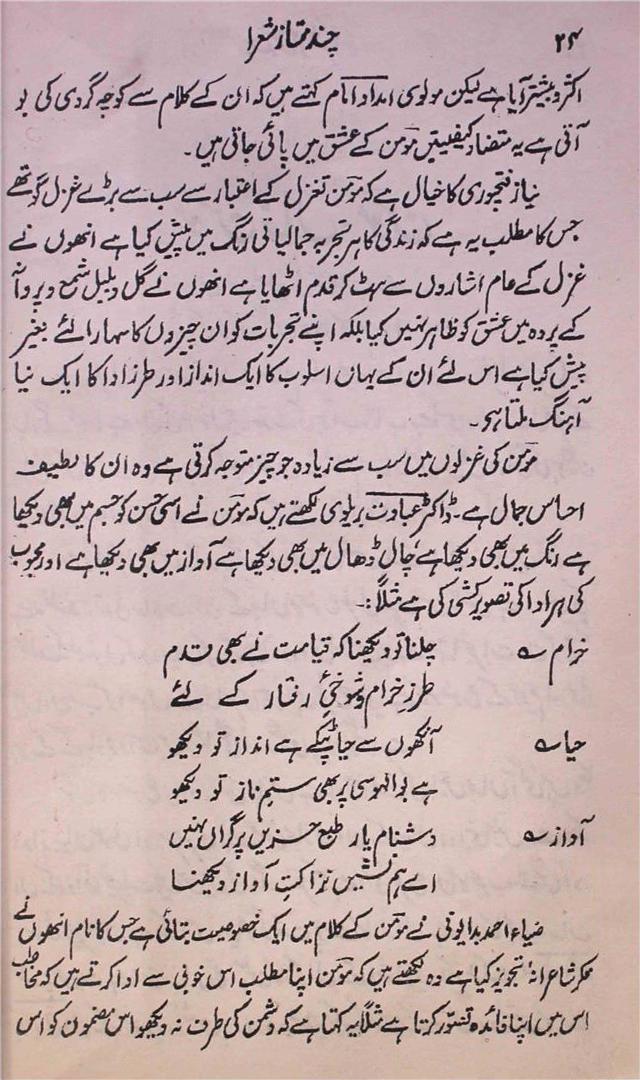 ۲۴ چند ممتاز شعرا
اکثر و بیشتر آیا ہے لیکن مولوی امداد امام کہتے ہیں کہ ان کے کلام سے کوچہ گردی کی بو
آتی ہے یہ متضاد کیفیتیں مومن کے عشق میں پائی جاتی ہیں۔
نیاز فتحپوری کا خیال ہے کہ مومن تغزل کے اعتبار سے سب سے بڑے غزل گو تھے
جس کا مطلب یہ ہے کہ زندگی کا ہر تجربہ جمالیاتی رنگ میں پیش کیا ہے انھوں نے
غزل کے عام اشاروں سے ہٹ کر قدم اٹھایا ہے انھوں نے گل و بلبل شمع و پروانہ
کے پردہ میں عشق کو ظاہر نہیں کیا بلکہ اپنے تجربات کو ان چیزوں کا سہارا لئے بغیر
پیش کیا ہے اس لئے ان کے یہاں اسلوب کا ایک انداز اور طرز ادا کا ایک نیا
آہنگ ملتا ہی۔
مومن کی غزلوں میں سب سے زیادہ جو چیز متوجہ کرتی ہے وہ ان کا لطیف
احساس جمال ہے۔ ڈاکٹر عبادت بریلوی لکھتے ہیں کہ مومن نے اسی حسن کو جسم میں بھی دیکھا
ہے رنگ میں بھی دیکھا ہے چال ڈھال میں بھی دیکھا ہے آواز میں بھی دیکھا ہے اور محبوب
کی ہر ادا کی تصویر کشی کی ہے مثلاً:۔
خرام ؎ چلنا تو دیکھنا کہ قیامت نے بھی قدم
طرزِ خرام و شوخیِٔ رفتار کے لئے
حیا ؎ آنکھوں سے حیا ٹپکے ہے انداز تو دیکھو
ہے بوالہوسی پر بھی ستم ناز تو دیکھو
آواز ؎ دشنام یار طبع حزیں پر گراں نہیں
اے ہم نشیں نزاکتِ آواز دیکھنا
ضیاء احمد بدایونی نے مومن کے کلام میں ایک خصوصیت بتائی ہے جس کا نام انھوں نے
مکر شاعرانہ تجویز کیا ہے وہ لکھتے ہیں کہ مومن اپنا مطلب اس خوبی سے ادا کرتے ہیں کہ مخاطب
اس میں اپنا فائدہ تصور کرتا ہے مثلاً یہ کہنا ہے کہ دشمن کی طرف نہ دیکھو اس مضمون کو اس